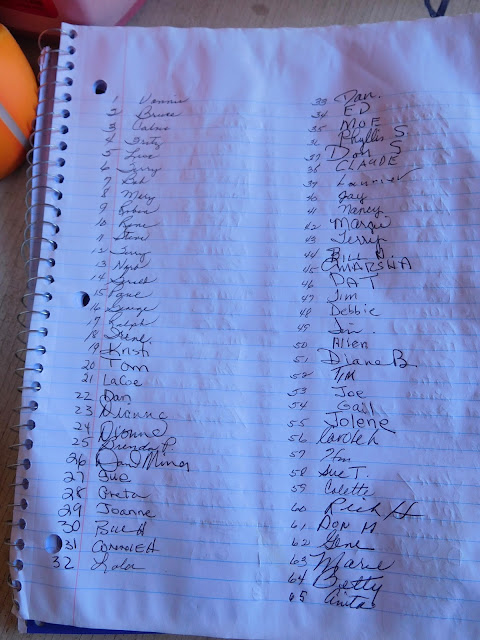 1 Vonnie
2 Bruce
3
4
5
6 Terry
7 Bob
8 Mary
9
10 Rose
11 Steve
12
13
14
15
16 George
17 Ralph
18 Irene
19 Kristi
20 Tom
21 LaCoe
22 Dan
23 Dianne
24 Dionne
25 Brenda P
26 Minor
27 Sue
28 Greta
29 Joanne
30 Bill H
31 CONNIE H
32 Lola
33 Dan.
34 ED
35 MOE
36 Phyllis S
37 Don S
38 CLAUDE
39 Laurier
40 Jay
41 Nancy
42 Margie
43 Terry
44 BILL N.
45 MARSHA
46 PAT
47 Jim
48 Debbie
49 Jim
50 Allen
51 Diane B
52 Tim
53 Joe
54 Gail
55 Jolene
56 Caroleh
57
58 Sue T.
59 Colette
60 Rich H
61 DON M
62 Gene
63 Marie
64 Betty
65 Anita